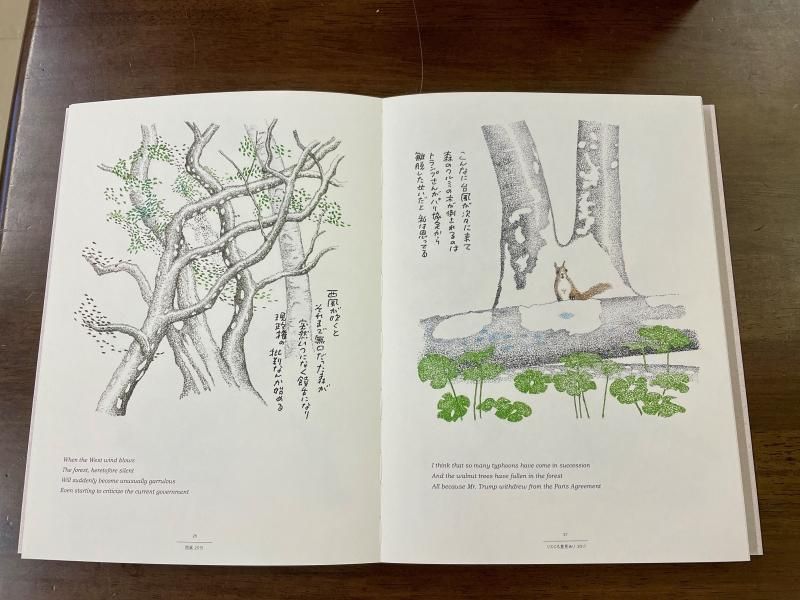 西風が吹くと
それまで無口だった森が
突然いつになく饒舌になり
現政権の 批判なんか始める
When the West wind blows
The forest, heretofore silent
Will suddenly become unusually garrulous
Even starting to criticize the current government
西風 2015
こんなに台風が次々に来て
森のクルミの木が倒されるのは
トランプさんがパリ協定から
離脱したせいだと 私は思ってる
I think that so many typhoons have come in succession
And the walnut trees have fallen in the forest
All because Mr. Trump withdrew from the Paris Agreement
リスにも意見あり 2017